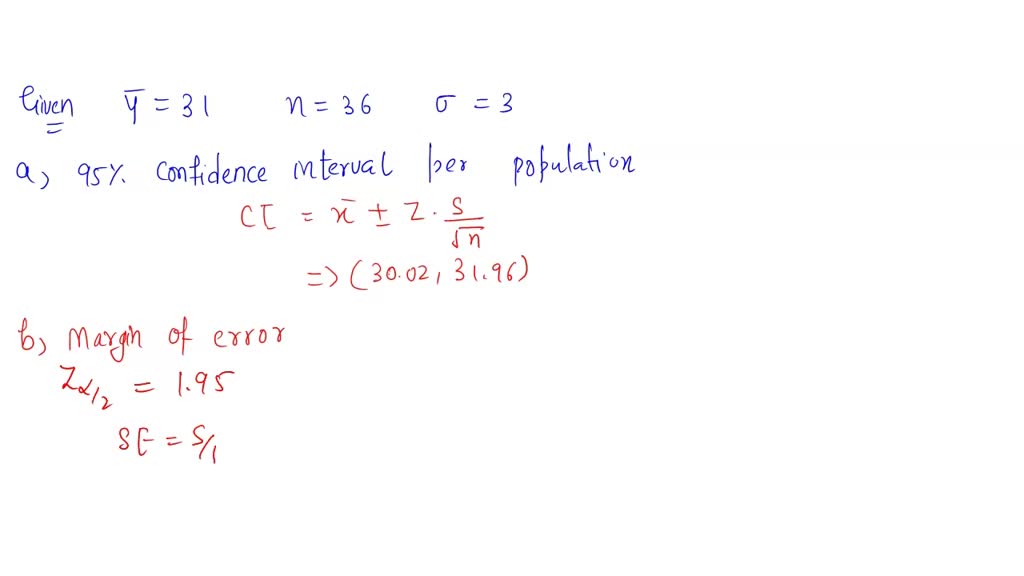 Given ȳ = 31 n = 36 σ = 3
a, 95% confidence interval per population
CI = x̄ ± Z · S/√n
=> (30.02, 31.96)
b, Margin of error
Zα/2 = 1.95
SE = S/